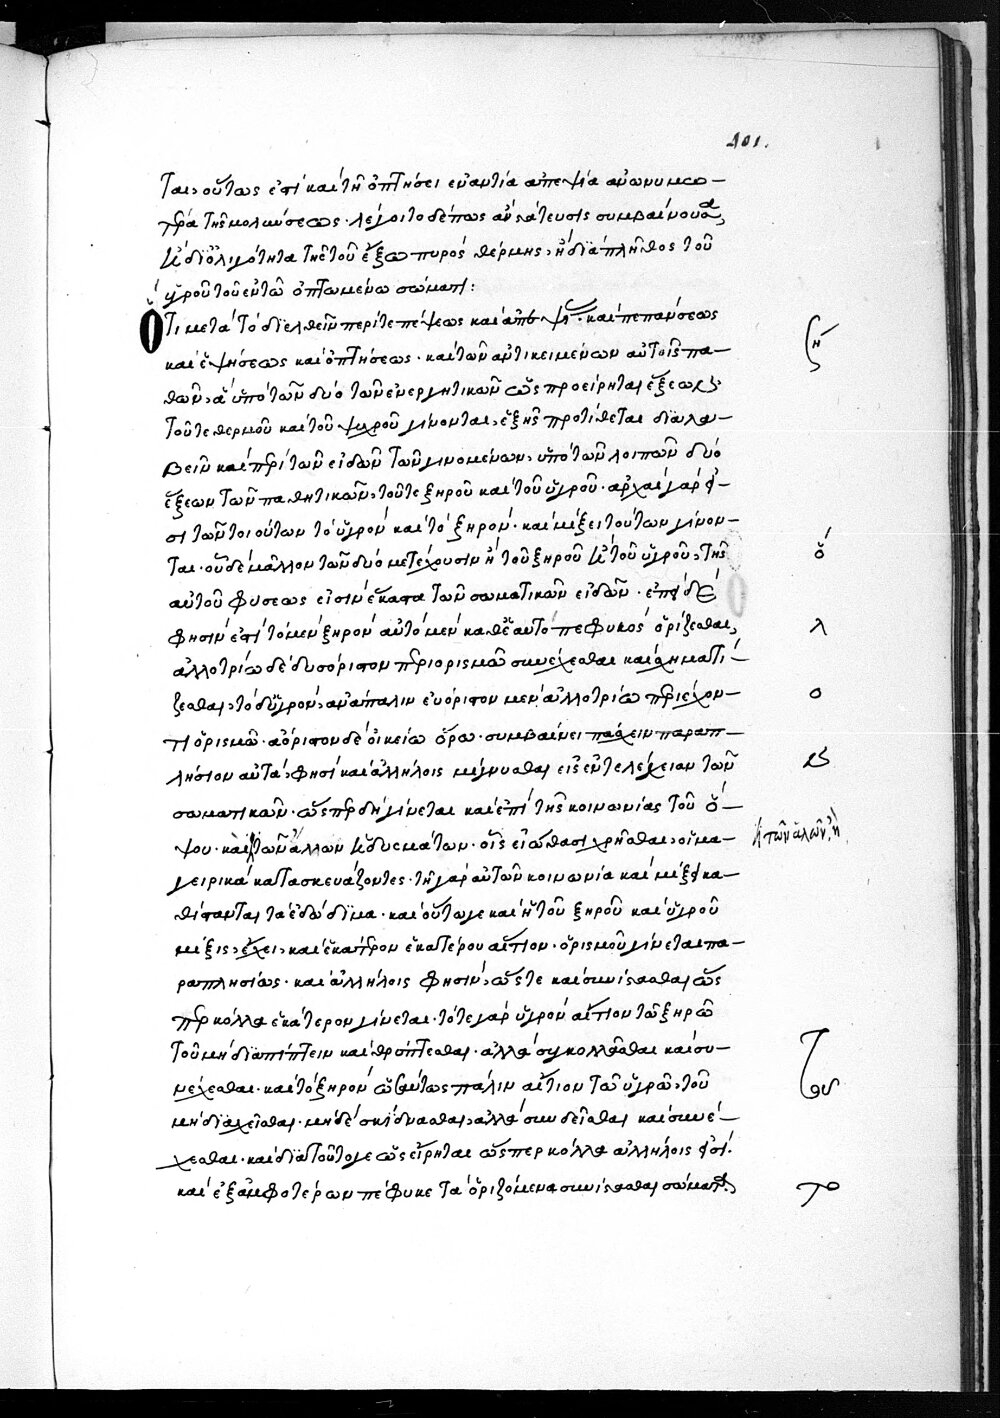 101.
ται, οὕτως ἐπὶ καὶ τῇ ὀπτήσει ἐναντία ἀπεψία ἀνώνυμος
παρὰ τῆς μολύνσεως. λέγοιτο δέ πως ἂν στάτευσις συμβαίνουσα,
ἢ δι' ὀλιγότητα τῆς τοῦ ἔξω πυρὸς θέρμης, ἢ διὰ πλῆθος τοῦ
ὑγροῦ τοῦ ἐν τῷ ὀπτωμένῳ σώματι:
Ὅτι μετὰ τὸ διελθεῖν περί τε πέψεως καὶ ἀπεψίας. καὶ πεπάνσεως
καὶ ἑψήσεως καὶ ὀπτήσεως. καὶ τῶν ἀντικειμένων αὐτοῖς πα-
θῶν, ἃ ὑπὸ τῶν δύο τῶν ἐνεργητικῶν ὡς προείρηται ἕξεων,
τοῦ τε θερμοῦ καὶ τοῦ ψυχροῦ γίνονται, ἑξῆς προτίθεται διαλα-
βεῖν καὶ περὶ τῶν εἰδῶν τῶν γινομένων, ὑπὸ τῶν λοιπῶν δύο
ἕξεων τῶν παθητικῶν, τοῦ τε ξηροῦ καὶ τοῦ ὑγροῦ. ἀρχαὶ γάρ φη-
σι τῶν τοιούτων τὸ ὑγρὸν καὶ τὸ ξηρόν. καὶ μίξει τούτων γίνον-
ται. οὗ δὲ μᾶλλον τῶν δύο μετέχουσιν ἢ τοῦ ξηροῦ ἢ τοῦ ὑγροῦ, τῆς
αὐτοῦ φύσεως εἰσὶν ἕκαστα τῶν σωματικῶν εἰδῶν. ἐπεὶ δέ
φησιν ἐστὶ τὸ μὲν ξηρὸν αὐτὸ μὲν καθ' ἑαυτὸ πεφυκὸς ὁρίζεσθαι,
ἀλλοτρίῳ δὲ δυσόριστον περιορισμῷ συνέχεσθαι καὶ σχηματί-
ζεσθαι, τὸ δ' ὑγρὸν, ἀνάπαλιν εὐόριστον μὲν ἀλλοτρίῳ περιέχον-
τι ὁρισμῷ. ἀόριστον δὲ οἰκείῳ ὅρῳ. συμβαίνει πάσχειν παραπ-
λήσιον αὐτά, φησὶ καὶ ἀλλήλοις μίγνυσθαι εἰς ἐντελέχειαν τῶν
σωματικῶν. ὥσπερ δὴ γίνεται καὶ ἐπὶ τῆς κοινωνίας τοῦ ὄ-
ψου. καὶ τῶν ἄλλων ἡδυσμάτων. οἷς εἰώθασι χρῆσθαι, οἱ μα-
ἢ τῶν ἁλῶν, ἢ
γειρικὰ κατασκευάζοντες. τῇ γὰρ αὐτῶν κοινωνία καὶ μίξει κα-
θίστανται τὰ ἐδώδιμα. καὶ οὕτωγε καὶ ἡ τοῦ ξηροῦ καὶ ὑγροῦ
μίξις, ἔχει, καὶ ἑκάτερον ἑκατέρου αἴτιον. ὁρισμοῦ γίνεται πα-
ραπλησίως. καὶ ἀλλήλοις φησὶν, ὥστε καὶ συνίστασθαι ὥς
περ κόλλα ἑκάτερον γίνεται. τότε γὰρ ὑγρὸν αἴτιον τῷ ξηρῷ
τοῦ μὴ διαπίπτειν καὶ θρύπτεσθαι. ἀλλὰ συγκολλᾶσθαι καὶ συ-
νέχεσθαι. καὶ τὸ ξηρὸν ὡσαύτως πάλιν αἴτιον τῷ ὑγρῷ, τοῦ
μὴ διαχεῖσθαι. μηδὲ σκίδνασθαι, ἀλλὰ συνδεῖσθαι καὶ συνέ-
χεσθαι. καὶ διὰ τοῦτο γε ὡς εἴρηται ὥσπερ κόλλα ἀλλήλοις εἰσί.
καὶ ἐξ ἀμφοτέρων πέφυκε τὰ ὁριζόμενα συνίστασθαι σώματα,